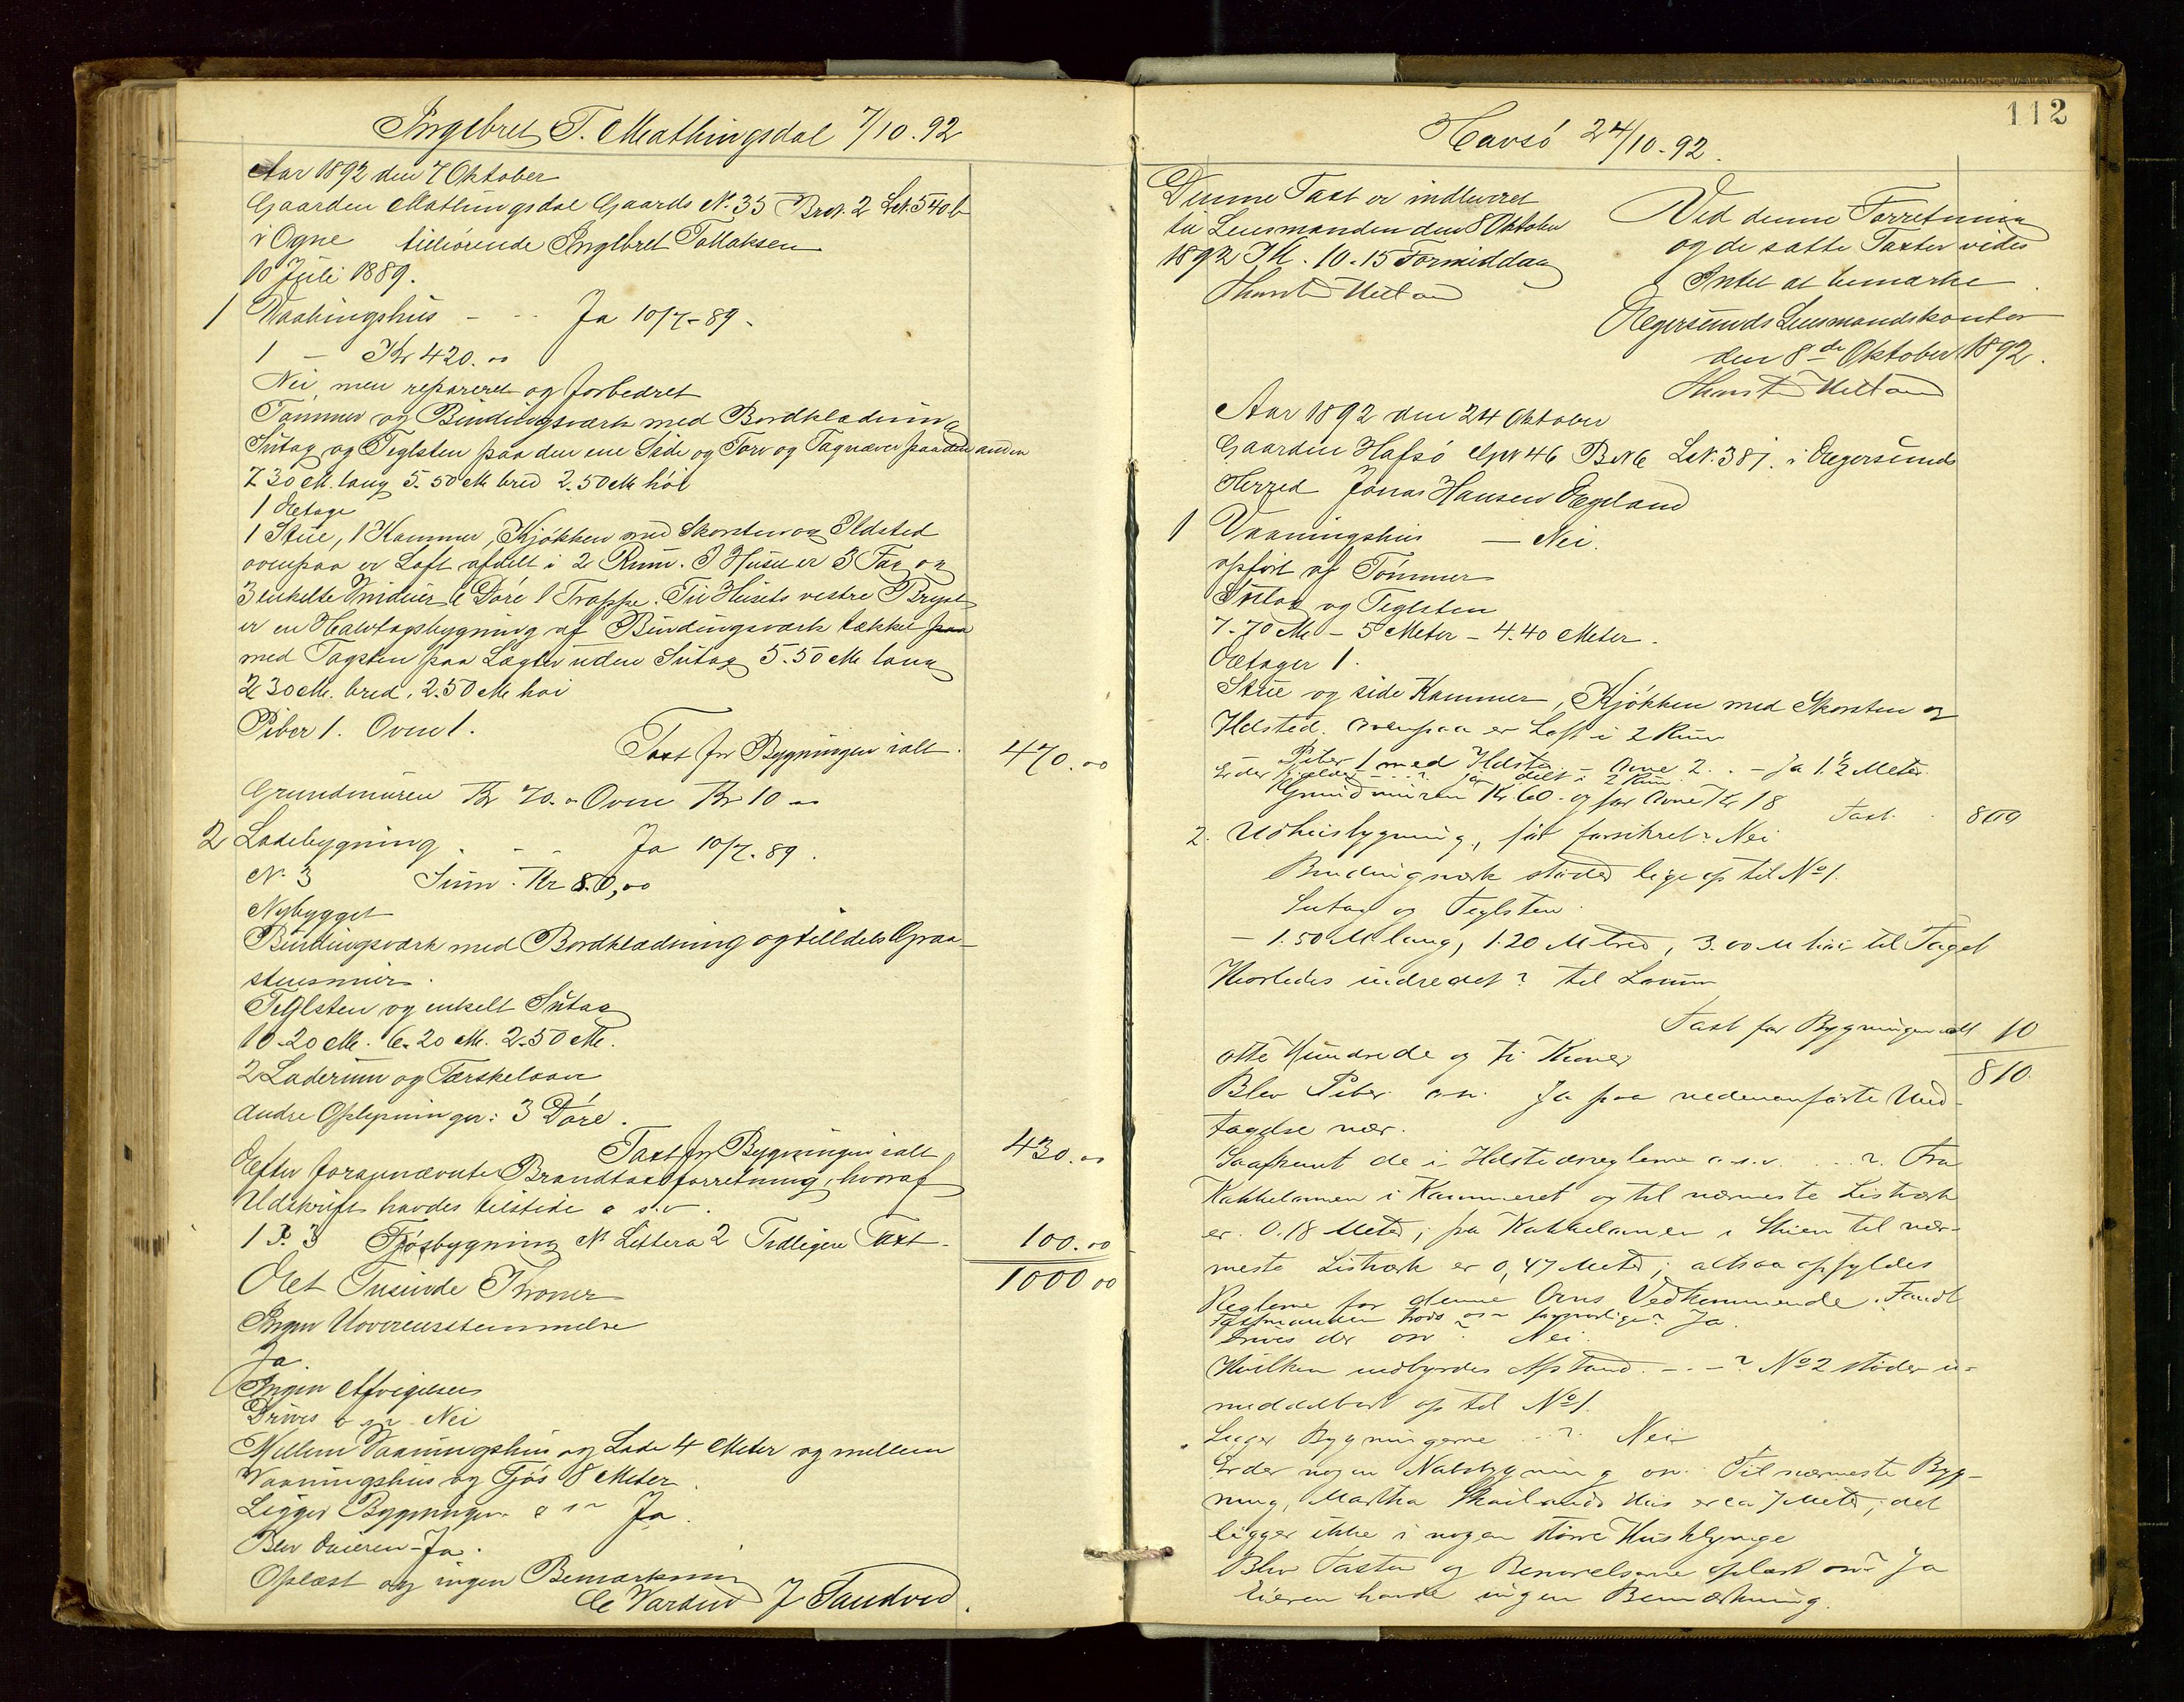 Ingebret T. Mathingsdal 7/10.92
Aar 1892 den 7 Oktober
Gaarden Mathingsdal Gaards N. 35 Brn. 2 LN. 540 b
i Ogne tilhørende Ingebret Tollaksen
10 Juli 1889.
1 Vaaningshus - - Ja 10/7-89.
1 - Kr 420.00
Nei, men repareret og forbedret
Tømmer og Bindingsværk med Bordklædning
Sutag og Teglsten paa den ene Side og Torv og Tagnæver paa den anden
7.30 M. lang 5.50 M bred 2.50 M høi
1 Etage
1 Stue, 1 Kammer, Kjøkken med Skorsten og Ildsted
ovenpaa er Loft afdelt i 2 Rum. I Huset er 3 Fag og
3 enkelte Vinduer 6 Døre 1 Trappe. Til Husets vestre Bryst
er en Halvtagsbygning af Bindingsværk tækket paa
med Tagsten paa Lægter uden Sutag 5.50 M lang
2.30 M. bred, 2.50 M høi
Piber 1. Ovne 1.
Taxt for Bygningen ialt. 470.00
Grundmuren Kr 70.00 Ovne Kr 10.00
2 Ladebygning. - - Ja 10/7.89.
N. 3 Sum. Kr 80,00
Nybygget
Bindingsværk med Bordklædning og tildels Graa-
stensmur.
Teglsten og enkelt Sutag
10.20 M. 6.20 M. 2.50 M.
2 Laderum og Tærskelaave
Andre Oplysninger: 3 Døre.
Taxt for Bygningen ialt 430.00
Efter foranævnte Brandtaxtforretning, hvoraf
Udskrift havdes tilstede o s.v.
1 P. 3 Fjøsbygning N Littera 2 Tidligere Taxt. 100.00
Et Tusinde Kroner 1000 00
Ingen Uoverensstemmelse
Ja.
Ingen Afvigelser
Drives o s v Nei
Mellem Vaaningshus og Lade 4 Meter og mellem
Vaaningshus og Fjøs 8 Meter.
Ligger Bygningen o s v Ja.
Blev Eieren - Ja.
Oplæst og ingen Bemærkning
J Tandvod.
112
Havsø 24/10.92.
Denne Taxt er indleveret
til Lensmanden den 8 Oktober
1892 Kl. 10.15 Formiddag
Ved denne Forretning
og de satte Taxter vides
Intet at bemærke
Egersunds Lensmandskontor
den 8de Oktober 1892.
Aar 1892 den 24 Oktober
Gaarden Hafsø Gn 46 BN 6 LN. 381. i Egersunds
Herred Jonas Hansen Egeland
1 Vaaningshus - Nei.
opført af Tømmer
Sutag og Teglsten
7.70 M - 5 Meter - 4.40 Meter.
Etager 1.
Stue og side Kammer, Kjøkken med Skorsten og
Ildsted. ovenpaa er Loft i 2 Rum
- Piber 1 med Ildsted - Ovne 2. - Ja 1 1/2 Meter
Er der Kjelder - -? Ja delt i 2 Rum
Grundmuren Kr. 60. og for Ovne Kr 18 Taxt. 800
2. Udhusbygning, før forsikret? Nei
Bindingsværk støder lige op til No 1.
Sutag og Teglsten.
- 1.50 M lang, 1.20 M bred, 3.00 M høi til Taget
Hvorledes indredet? til
Taxt for Bygningen ialt 10
otte Hundrede og ti Kroner 810.
Blev Piber o.s.v. Ja paa nedenanførte Und-
tagelse nær.
Saafremt de i Ildstedsreglerne o.s.v. ..? Fra
Kakkelovnen i Kammeret og til nærmeste Listværk
er 0.18 Meter; fra Kakkelovnen i Stuen til nær-
meste Listværk er 0,47 Meter; altsaa opfyldes
Reglerne for denne Ovns Vedkommende. Fandt
Taxtmanden osv Ja.
Drives der osv? Nei.
Hvilken indbyrdes Afstand. - -? No 2 støder u-
middelbart op til No 1.
Ligger Bygningerne ..? Nei
Er der nogen Nabobygning osv. Til nærmeste Byg-
ning, Martha Hus er ca 7 Meter; det
ligger ikke i nogen større Husklynge
Blev Taxten og Benævelserne oplæst osv? Ja
Eieren havde ingen Bemærkning.